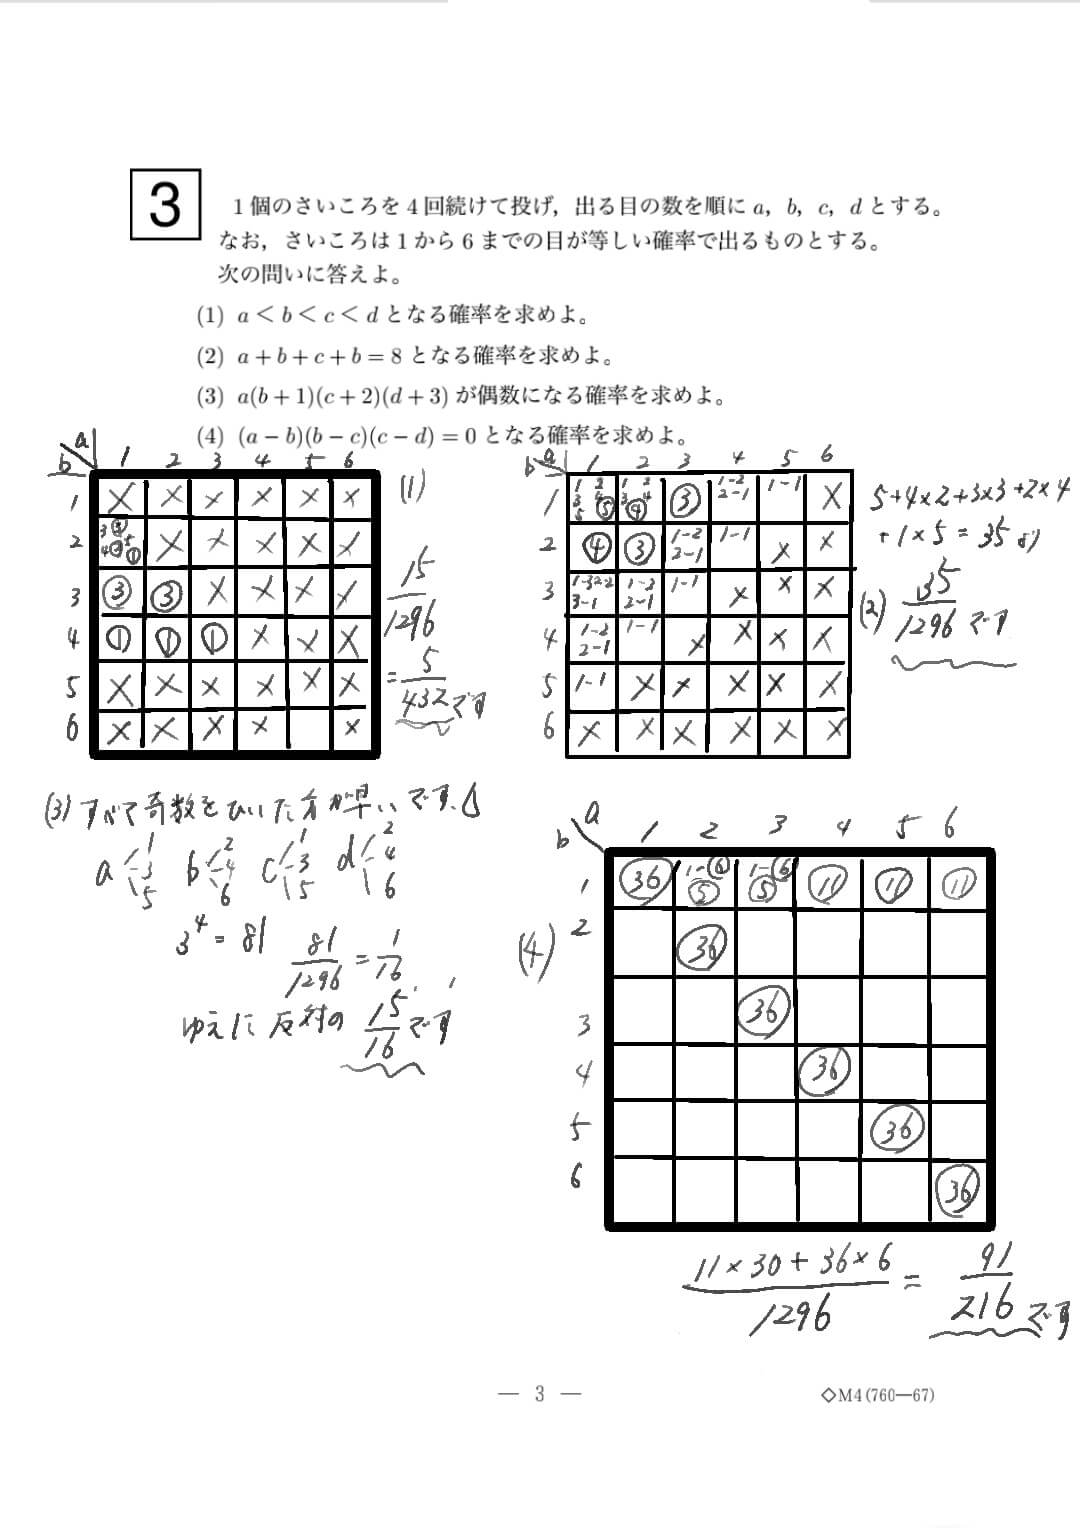 3
1個のさいころを4回続けて投げ，出る目の数を順に a，b，c，d とする。
なお，さいころは1から6までの目が等しい確率で出るものとする。
次の問いに答えよ。
(1) a < b < c < d となる確率を求めよ。
(2) a + b + c + b = 8 となる確率を求めよ。
(3) a(b + 1)(c + 2)(d + 3) が偶数になる確率を求めよ。
(4) (a − b)(b − c)(c − d) = 0 となる確率を求めよ。
b a 1 2 3 4 5 6
1 × × × × × ×
2 × × × × ×
3 ③ ③ × × × ×
4 ① ① ① × × ×
5 × × × × × ×
6 × × × × ×
(1)
15/1296
= 5/432 です
b a 1 2 3 4 5 6
1 1 2 3 4 5 ⑤ 1 2 3 4 ④ ③ 1-2 2-1 1-1 ×
2 ④ ③ 1-2 2-1 1-1 × ×
3 1-3 2-2 3-1 1-2 2-1 1-1 × × ×
4 1-2 2-1 1-1 × × × ×
5 1-1 × × × × ×
6 × × × × × ×
5+4×2+3×3+2×4
+1×5=35より
(2) 35/1296 です
(3) すべて奇数をひいた方が早いです。
a 1 3 5 b 2 4 6 c 1 3 5 d 2 4 6
3⁴ = 81 81/1296 = 1/16
ゆえに 反対の 15/16 です
(4)
b a 1 2 3 4 5 6
1 ㊱ 1-⑥ ⑤ 1-⑥ ⑤ ⑪ ⑪ ⑪
2 ㊱
3 ㊱
4 ㊱
5 ㊱
6 ㊱
11×30+36×6/1296 = 91/216 です
— 3 —
◇M4(760—67)